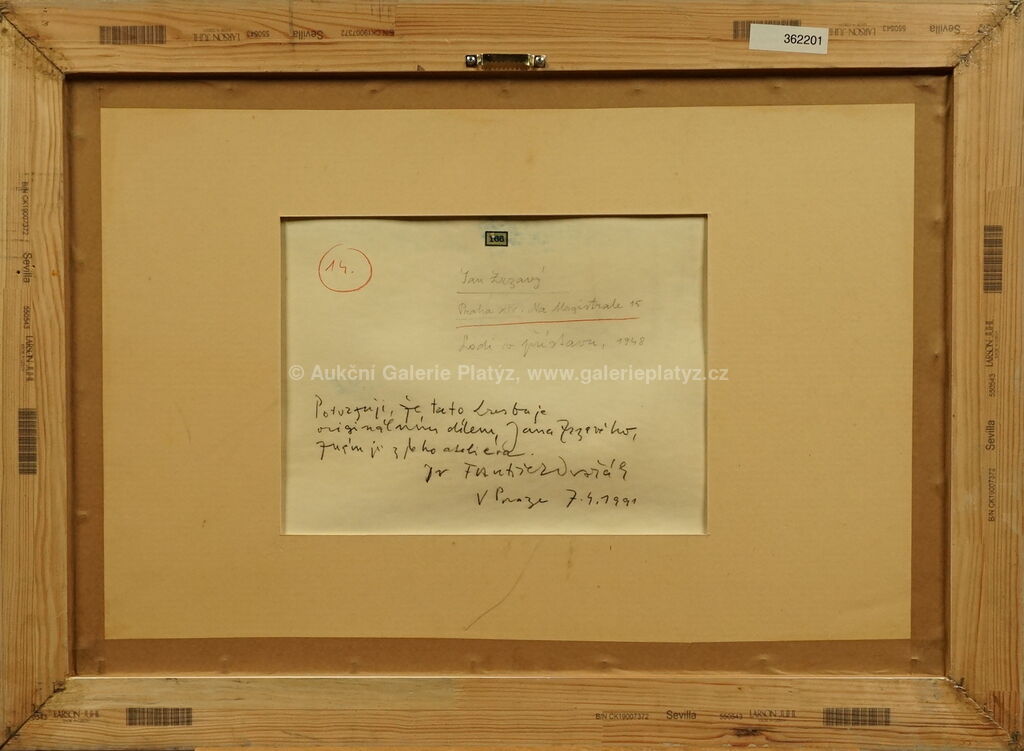 LARSON JUHL 550543 Sevilla B/N CK19007372
LARSON JUHL 550543 Sevilla
362201
166
14.
Jan Zrzavý
Praha XII. Na Magistrale 15
Lodi v přístavu, 1948
© Aukční Galerie Platýz, www.galerieplatyz.cz
Potvrzuji, že tato kresba je
originálním dílem Jana Zrzavého,
znám ji z jeho ateliéra.
Dr František Dvořák
V Praze 7.4.1991
B/N CK19007372 Sevilla 550543 LARSON JUHL
LARSON JUHL 550543 Sevilla B/N CK19007372
550543 LARSON JUHL
B/N CK19007372 Sevilla 550543 LARSON JUHL